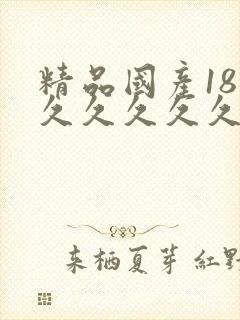 精品國產18
久久久久久
来栖夏芽 紅野